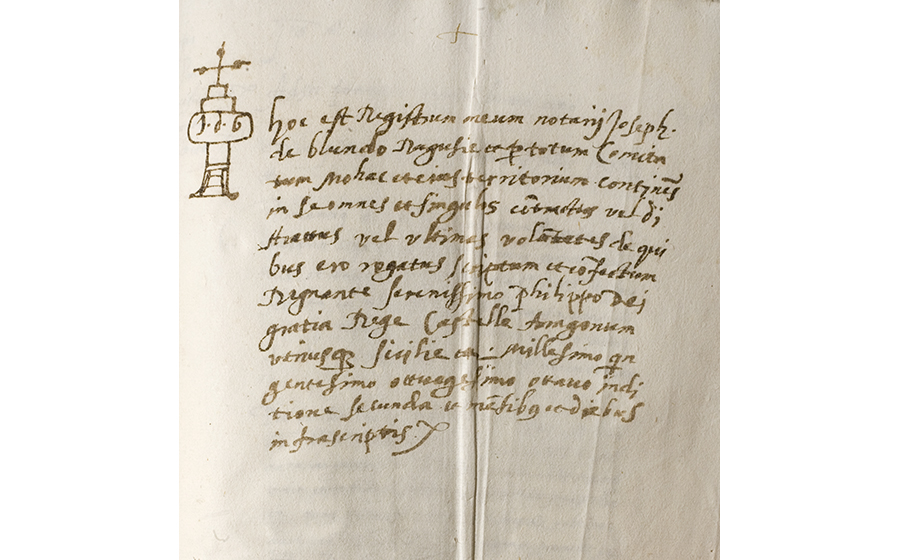 J. d. b
hoc est Registrum meum notarij Joseph.
de blundo Ragusie et p totum Comita
tum Mohac et eius territorium continēs
in se omnes et singulos cōtractus vel di
stractus vel ultimas volūtates de qui
bus ero rogatus scriptum et cōfectum
Regnante serenissimo philippo dei
gratia Rege Castelle Aragonum
utriusq Sicilie etc. Millesimo qn
gentesimo ottuagesimo ottavo indi
tione secunda et mēsibq et diebus
infrascriptis.